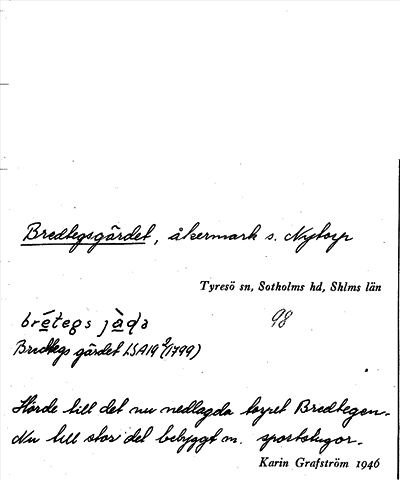 Bredtegsgärdet, åkermark s. Nytorp
Tyresö sn, Sotholms hd, Shlms län
98
brétegs jàḍa
Bredtegs gärdet LSA19 2/(1799)
Hörde till det nu nedlagda torpet Bredtegen.
Nu till stor del bebyggt m. sportstugor.
Karin Grafström 1946